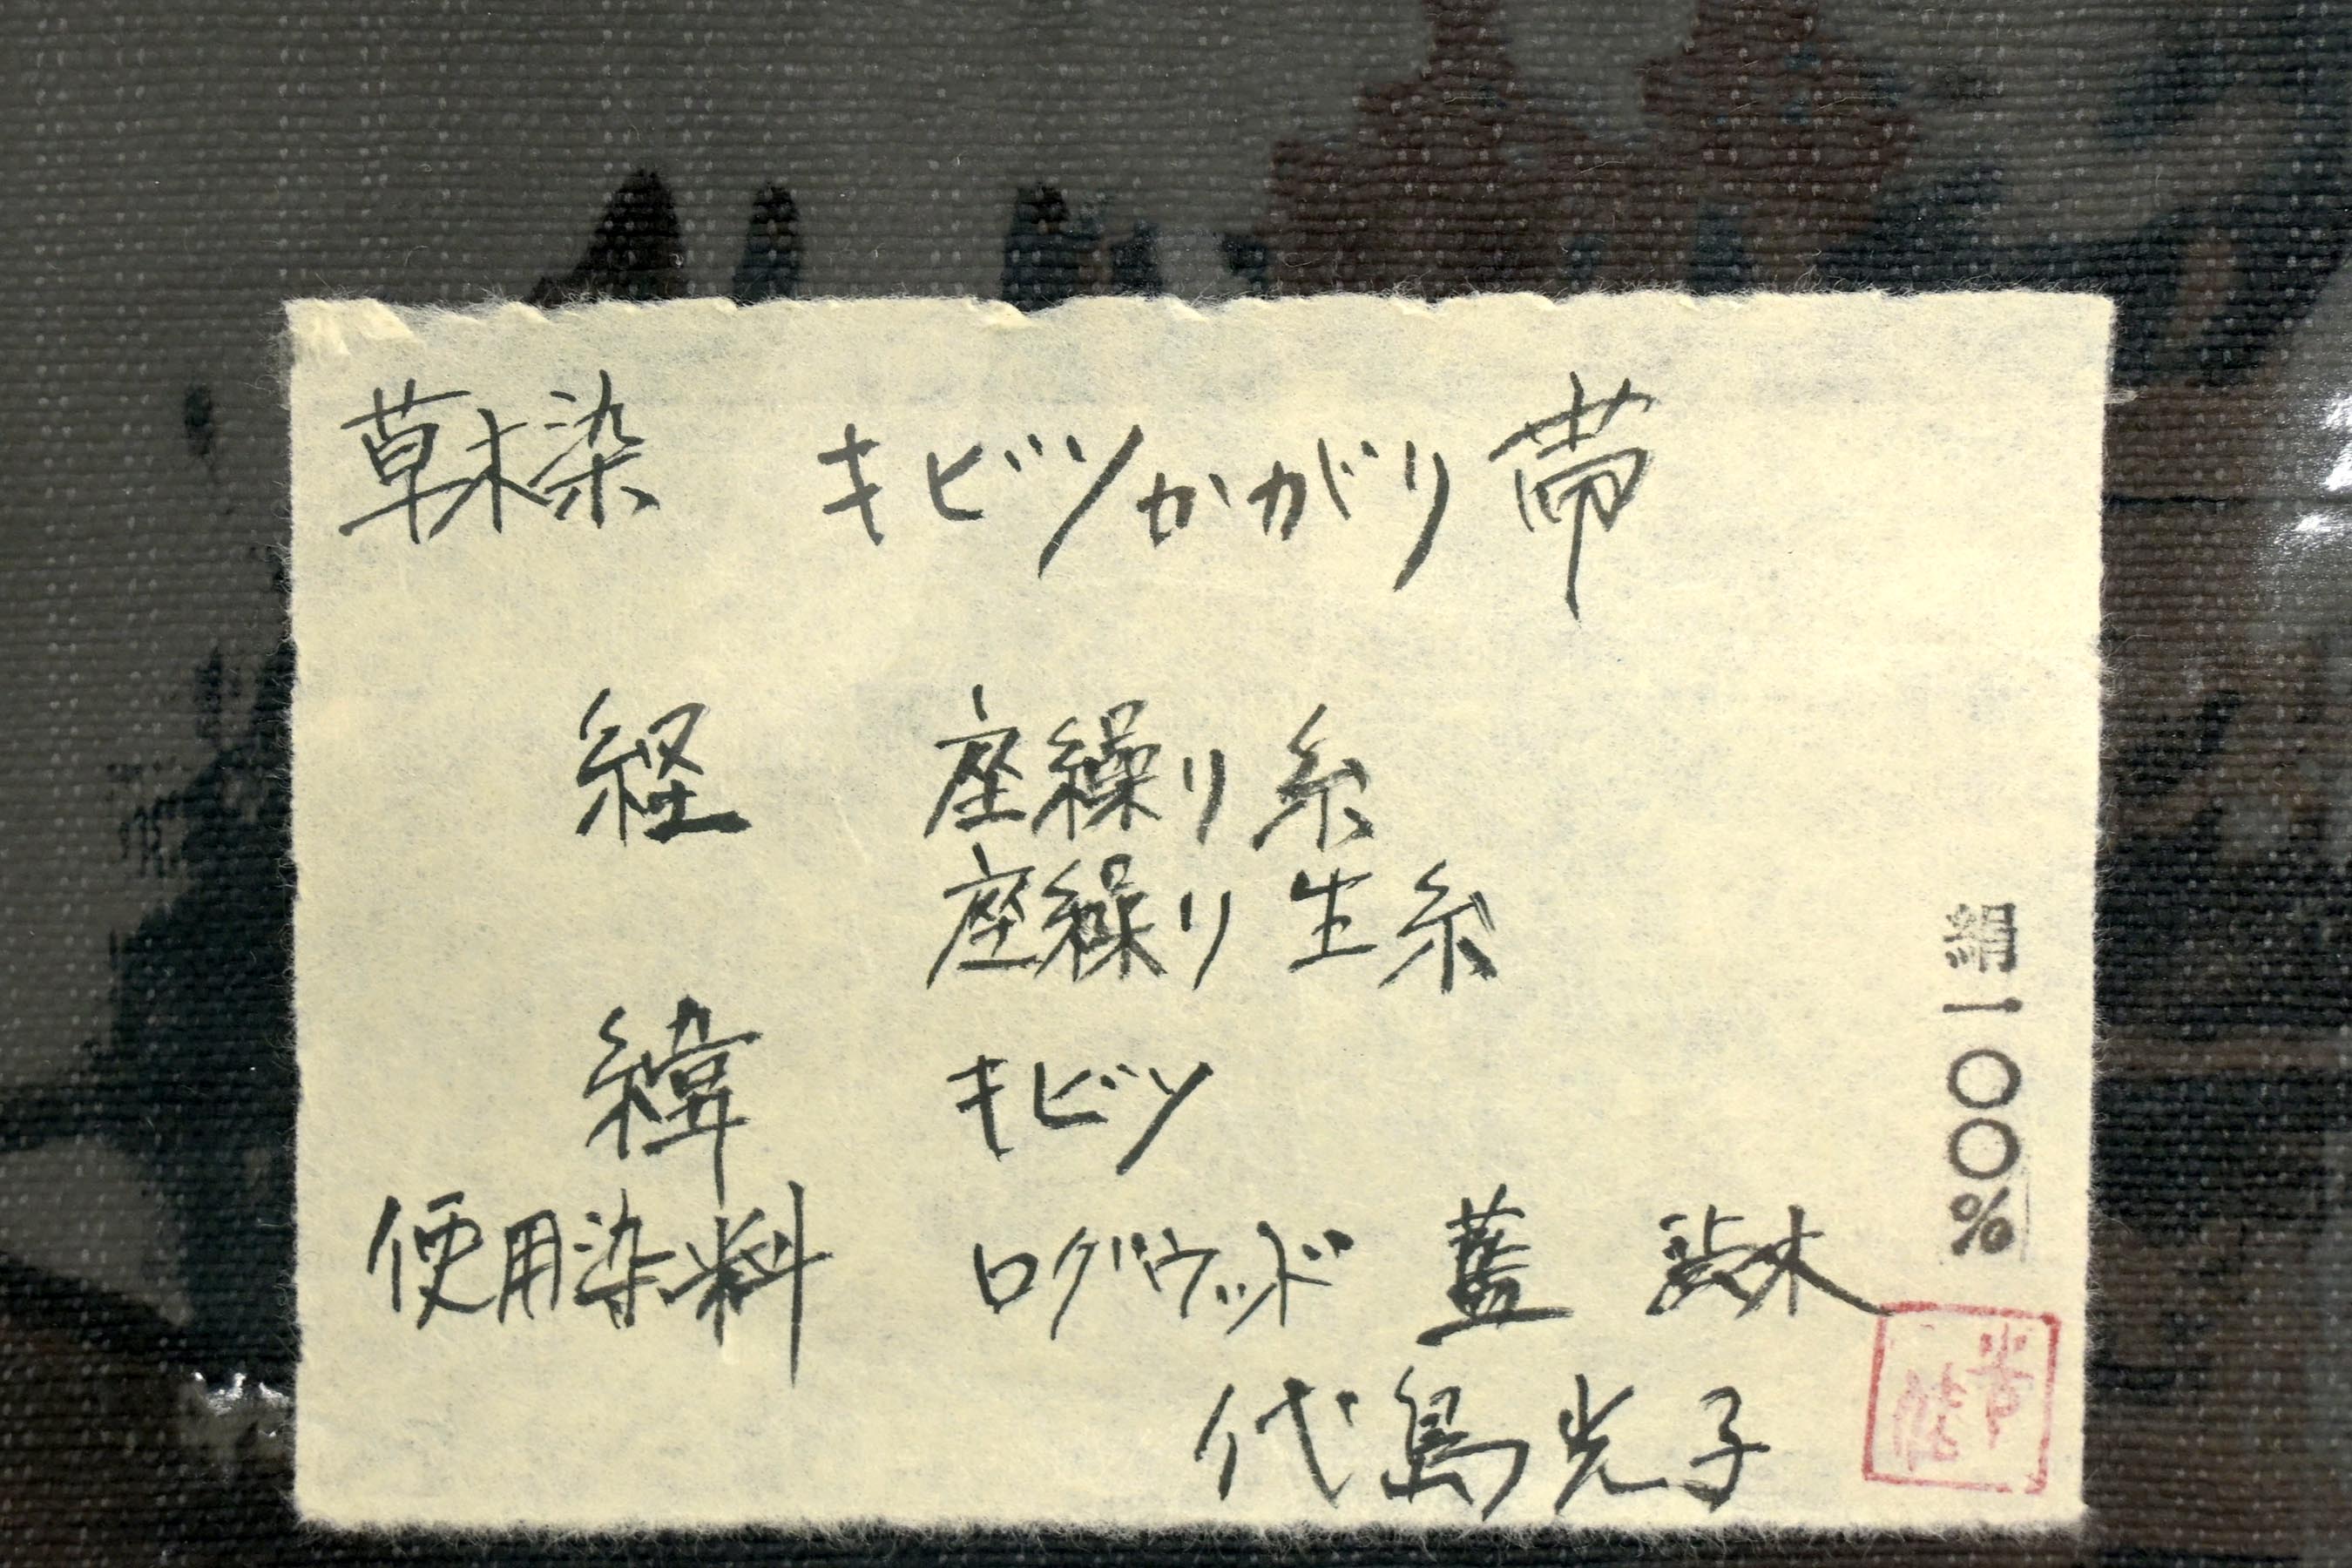 草木染 キビソかがり帯
経 座繰り糸
座繰り生糸
緯 キビソ
使用染料 ログウッド 藍 渋木
代島光子
絹一〇〇%